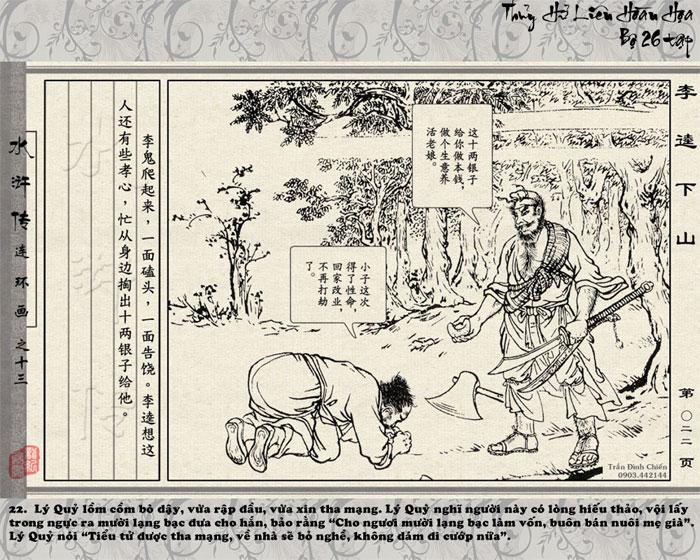 Thủy Hử Liên Hoàn Họa
Bộ 26 tập
水浒传连环画之十三
李逵下山
第〇二二页
李鬼爬起来，一面磕头，一面告饶。李逵想这
人还有些孝心，忙从身边掏出十两银子给他。
这十两银子
给你做本钱，
做个生意养
活老娘。
小子这次
得了性命，
回家改业，
不再打劫
了。
Trần Đình Chiến
0903.442144
22. Lý Quỷ lồm cồm bò dậy, vừa rập đầu, vừa xin tha mạng. Lý Quỳ nghĩ người này có lòng hiếu thảo, vội lấy
trong ngực ra mười lạng bạc đưa cho hắn, bảo rằng “Cho ngươi mười lạng bạc làm vốn, buôn bán nuôi mẹ già”.
Lý Quỷ nói “Tiểu tử được tha mạng, về nhà sẽ bỏ nghề, không dám đi cướp nữa”.